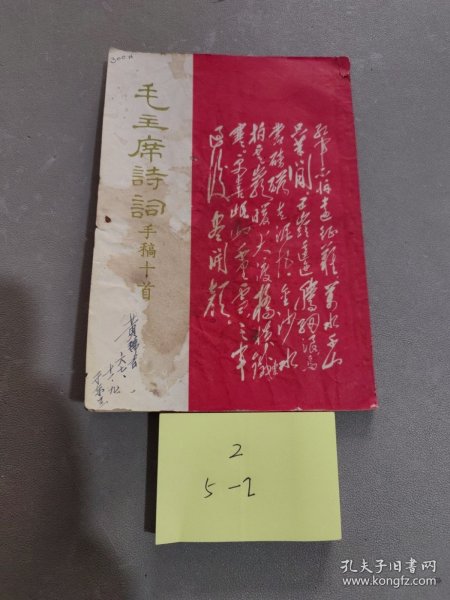 毛主席詩詞
手稿十首
紅軍不怕遠征難萬水千山
只等閒五嶺逶迤騰細浪烏
蒙磅礴走泥丸金沙水
拍雲崖暖大渡橋橫鐵索
寒更喜岷山千里雪三軍
過後盡開顏
2
5-2
孔夫子旧书网
www.kongfz.com